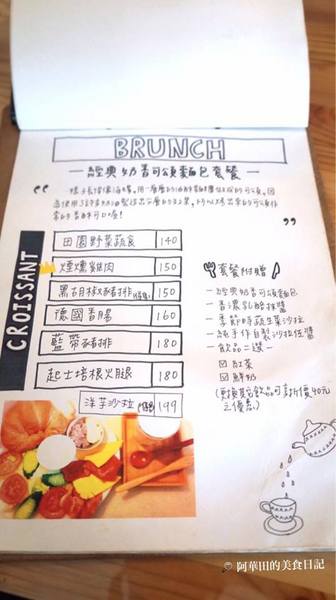 BRUNCH
經典奶香可頌麵包套餐
田園野菜蔬食 140
煙燻雞肉 150
黑胡椒豬排 150
德國香腸 160
藍帶豬排 180
起士培根火腿 180
洋芋沙拉 199
CROISSANT
套餐附贈
－經典奶香可頌麵包
－香濃乳酪抹醬
－季節時蔬生菜沙拉
－純手作自製沙拉佐醬
－飲品二選一
紅茶
鮮奶
(更換其它飲品可享折價40元
之優惠)
阿華田的美食日記